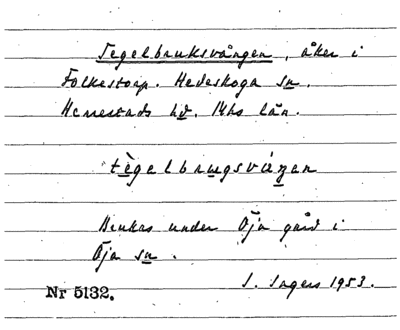 Tegelbruksvången, åker i
Folkestorp. Hedeskoga sn.
Herrestads hd. Mhs län.
tègelbrugsváŋen
Brukas under Öja gård i
Öja sn.
Nr 5132.
I. Ingers 1953.